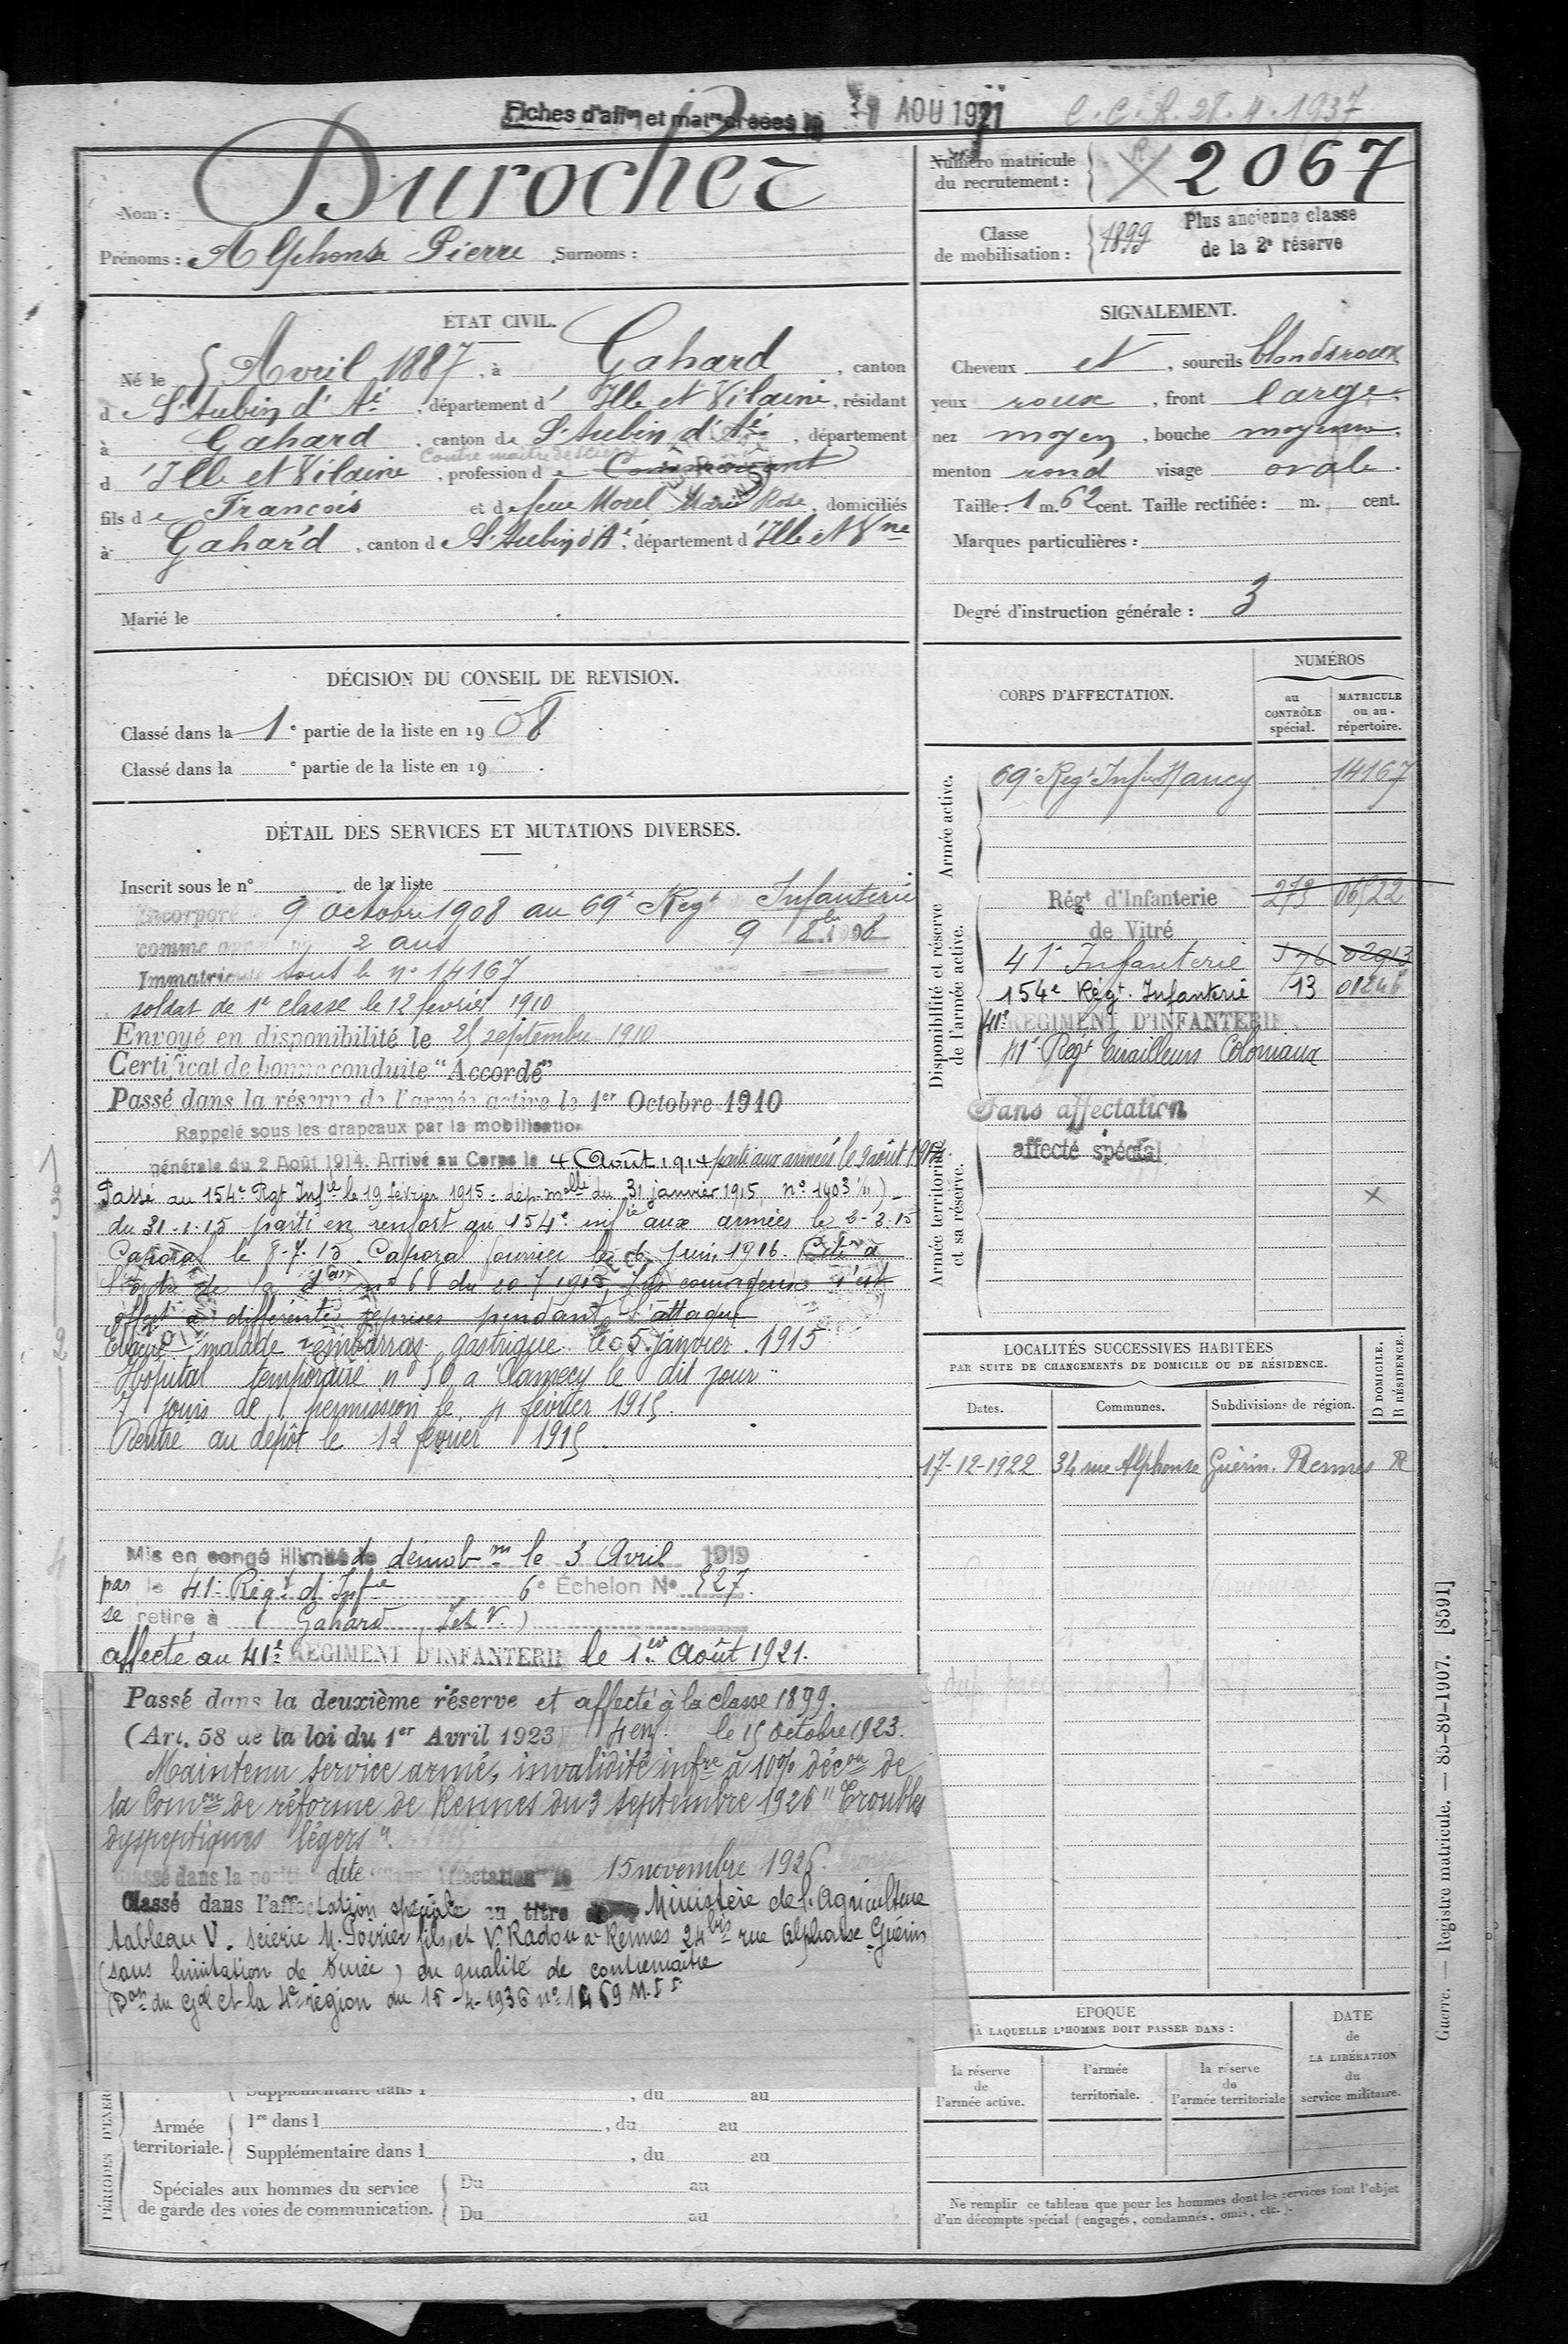 Fiches d'aff.on et mat.les créées le 31 AOU 1921
C.C.R. 28.4.1937
Nom : Durocher
Prénoms : Alphonse Pierre Surnoms :
Numéro matricule du recrutement : 2067
Classe de mobilisation : 1899 Plus ancienne classe
de la 2e réserve
ÉTAT CIVIL.
Né le 5 Avril 1887, à Gahard, canton
d St Aubin d'Aé, département d'Ille et Vilaine, résidant
à Gahard, canton de St Aubin d'Aé, département
Contre maitre de scierie
d'Ille et Vilaine, profession de
fils de François et de feue Morel Marie Rose, domiciliés
à Gahard, canton d St Aubin d'Aé, département d'Ille et Vne
Marié le
SIGNALEMENT.
Cheveux et, sourcils blonds roux
yeux roux, front large.
nez moyen, bouche moyenne.
menton rond visage ovale.
Taille : 1 m. 62 cent. Taille rectifiée : m. cent.
Marques particulières :
Degré d'instruction générale : 3
DÉCISION DU CONSEIL DE REVISION.
Classé dans la 1e partie de la liste en 1908
Classé dans la e partie de la liste en 19 .
DÉTAIL DES SERVICES ET MUTATIONS DIVERSES.
Inscrit sous le n° de la liste
Incorporé 9 octobre 1908 au 69e Regt Infanterie
comme 2 ans 9 8bre 1908
Immatriculé sous le n° 14167
soldat de 1e classe le 12 fevrier 1910
Envoyé en disponibilité le 25 septembre 1910
Certificat de bonne conduite "Accordé"
Passé dans la réserve de l'armée active le 1er Octobre 1910
Rappelé sous les drapeaux par la mobilisation
générale du 2 Août 1914. Arrivé au Corps le 4 Août 1914 parti aux armées le 9 août 1914
Passé au 154e Rgt Infie le 19 février 1915 : dép. melle du 31 janvier 1915, n° 1403 1/11)
du 31-1-15 parti en renfort au 154e infie aux armées le 2-3-15
Caporal le 8-7-15. Caporal fourrier le 6 Juin 1916. Cité à
l'ordre de la don n° 68 du 20-7 1915 Très courageux s'est
offert à différentes reprises pendant l'attaque
Evacué malade embarras gastrique le 5 janvier 1915
Hôpital temporaire n° 50 à Clamecy le dit jour
7 jours de permission le 4 février 1915
Rentré au dépôt le 12 fevrier 1915
Mis en congé illimité de démobon le 3 Avril 1919
par le 41e Régt d'Infie 6e Échelon No 527
se retire à Gahard, I et V.)
affecté au 41e RÉGIMENT D'INFANTERIE le 1er Août 1921.
Passé dans la deuxième réserve et affecté à la classe 1899.
(Art. 58 de la loi du 1er Avril 1923) 4 enf. le 15 octobre 1923.
Maintenu service armé, invalidité infre à 10% décon de
la Comon de réforme de Rennes du 3 septembre 1926 "Troubles
dyspeptiques légers".
Classé dans la position dite "sans affectation" le 15 novembre 1926.
Classé dans l'affectation spéciale au titre Ministère de l'Agriculture
tableau V. Scierie M. Poirier fils et V. Radou à Rennes 24bis rue Alphonse Guérin
(sans limitation de durée) en qualité de contremaître
(Don du Gal Ct la 4e région du 15-4-1936 n° 1469 M.
CORPS D'AFFECTATION.
NUMÉROS
au CONTRÔLE spécial.
MATRICULE ou au répertoire.
Armée active.
69e Regt Infie Nancy 14167
Disponibilité et réserve de l'armée active.
Régt d'Infanterie 273 06522
de Vitré
41e Infanterie 576 02913
154e Régt. Infanterie 13 01246
41e RÉGIMENT D'INFANTERIE
Régt Tirailleurs Coloniaux
Sans affectation
affecté spécial
Armée territoriale et sa réserve.
LOCALITÉS SUCCESSIVES HABITÉES
PAR SUITE DE CHANGEMENTS DE DOMICILE OU DE RÉSIDENCE.
D DOMICILE.
R RÉSIDENCE.
Dates. Communes. Subdivisions de région.
17-12-1922 34 rue Alphonse Guérin. Rennes R
ÉPOQUE
À LAQUELLE L'HOMME DOIT PASSER DANS :
la réserve de l'armée active.
l'armée territoriale.
la réserve de l'armée territoriale
DATE de LA LIBÉRATION du service militaire.
Supplémentaire dans l , du au
Armée territoriale.
1re dans l , du au
Supplémentaire dans l , du au
Spéciales aux hommes du service
de garde des voies de communication.
Du au
Du au
Ne remplir ce tableau que pour les hommes dont les services font l'objet
d'un décompte spécial (engagés, condamnés, omis, etc.).
Guerre. — Registre matricule. — 85-89-1907. [8591]